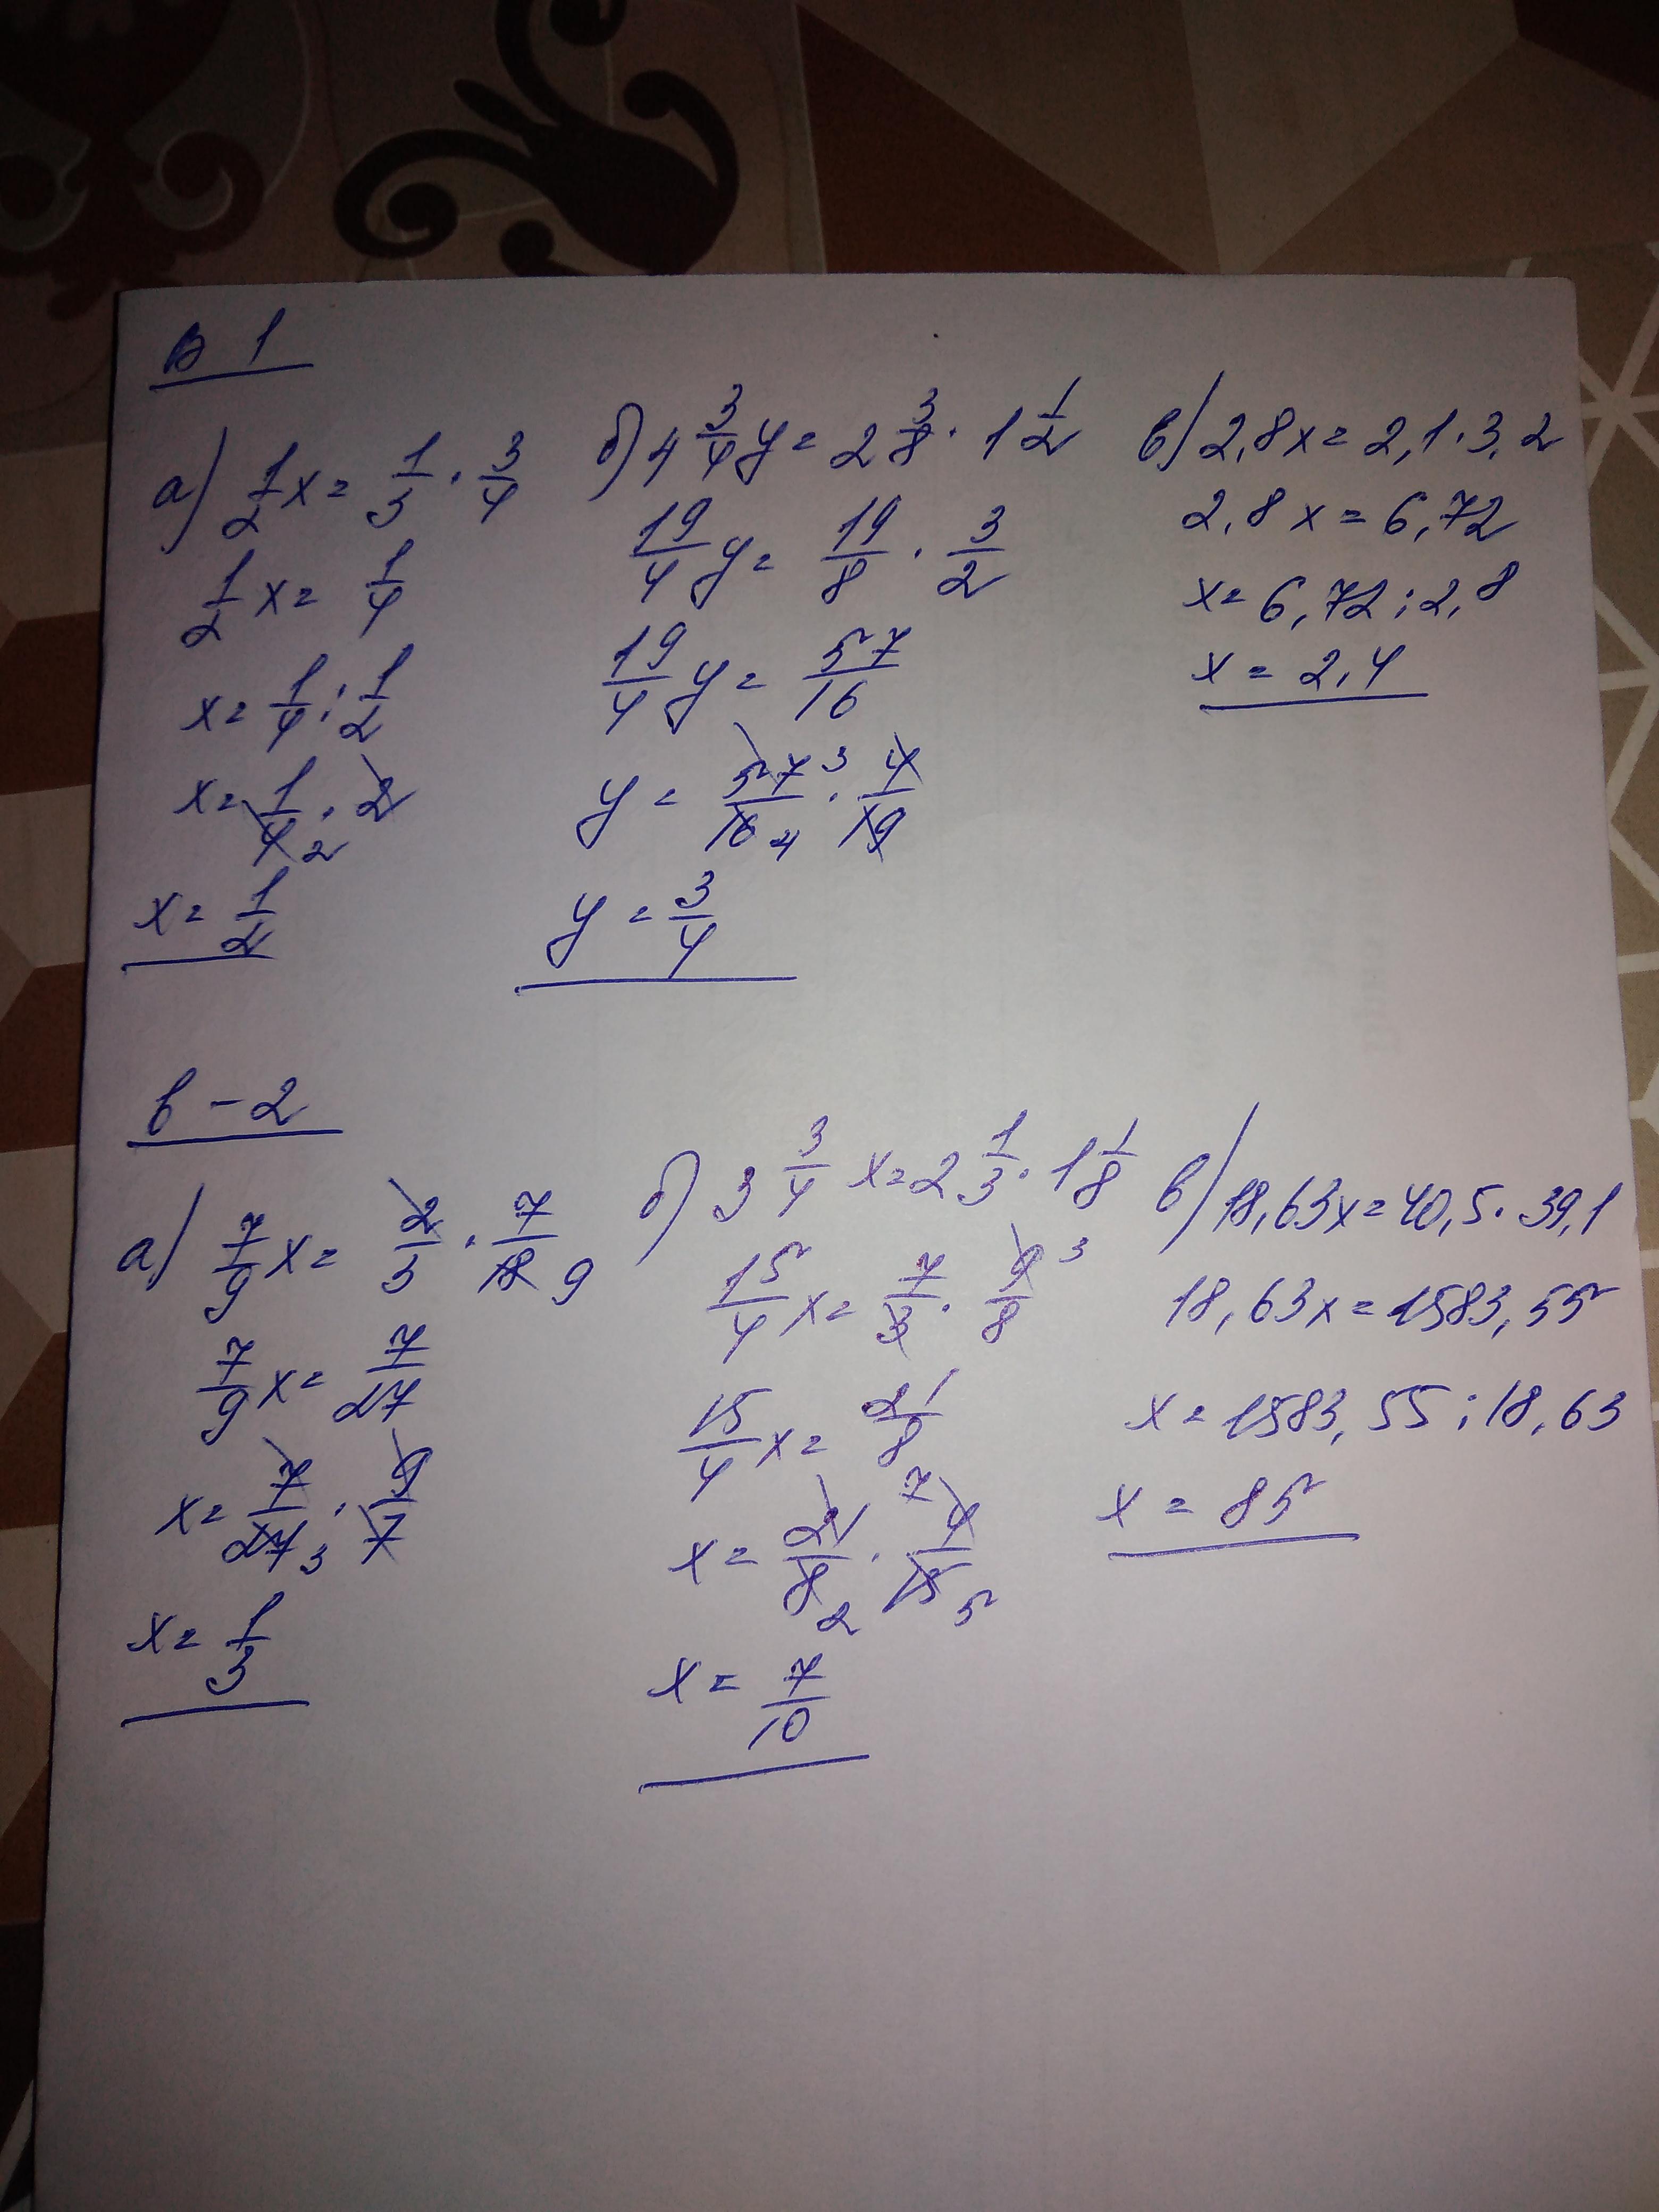 В 1
а) 1/2 x = 1/3 · 3/4
1/2 x = 1/4
x = 1/4 : 1/2
x = 1/4 2 · 2
x = 1/2
б) 4 3/4 y = 2 3/8 · 1 1/2
19/4 y = 19/8 · 3/2
19/4 y = 57/16
y = 57 3/16 4 · 4/19
y = 3/4
в) 2,8x = 2,1 · 3,2
2,8x = 6,72
x = 6,72 : 2,8
x = 2,4
в - 2
а) 7/9 x = 2/3 · 7/18 9
7/9 x = 7/27
x = 7/27 3 · 9/7
x = 1/3
б) 3 3/4 x = 2 1/3 · 1 1/8
15/4 x = 7/3 · 9 3/8
15/4 x = 21/8
x = 21 7/8 2 · 4/15 5
x = 7/10
в) 18,63x = 40,5 · 39,1
18,63x = 1583,55
x = 1583,55 : 18,63
x = 85